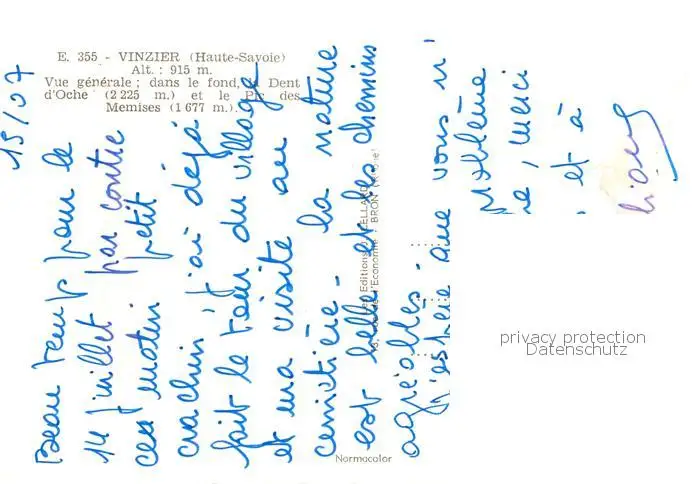 E. 355 - VINZIER (Haute-Savoie)
Alt. : 915 m.
Vue générale ; dans le fond, la Dent
d'Oche (2 225 m.) et le Pic des
Memises (1 677 m.).
15/07
Beau temps pour le
14 juillet par contre
ce matin petit
crachin, j'ai déjà
fait le tour du village
et ma visite au
cimetière - la nature
est belle et les chemins
agréables.
j'espère que vous n'
problème
, merci
et à
Les Editions
BRON
Normacolor
privacy protection
Datenschutz